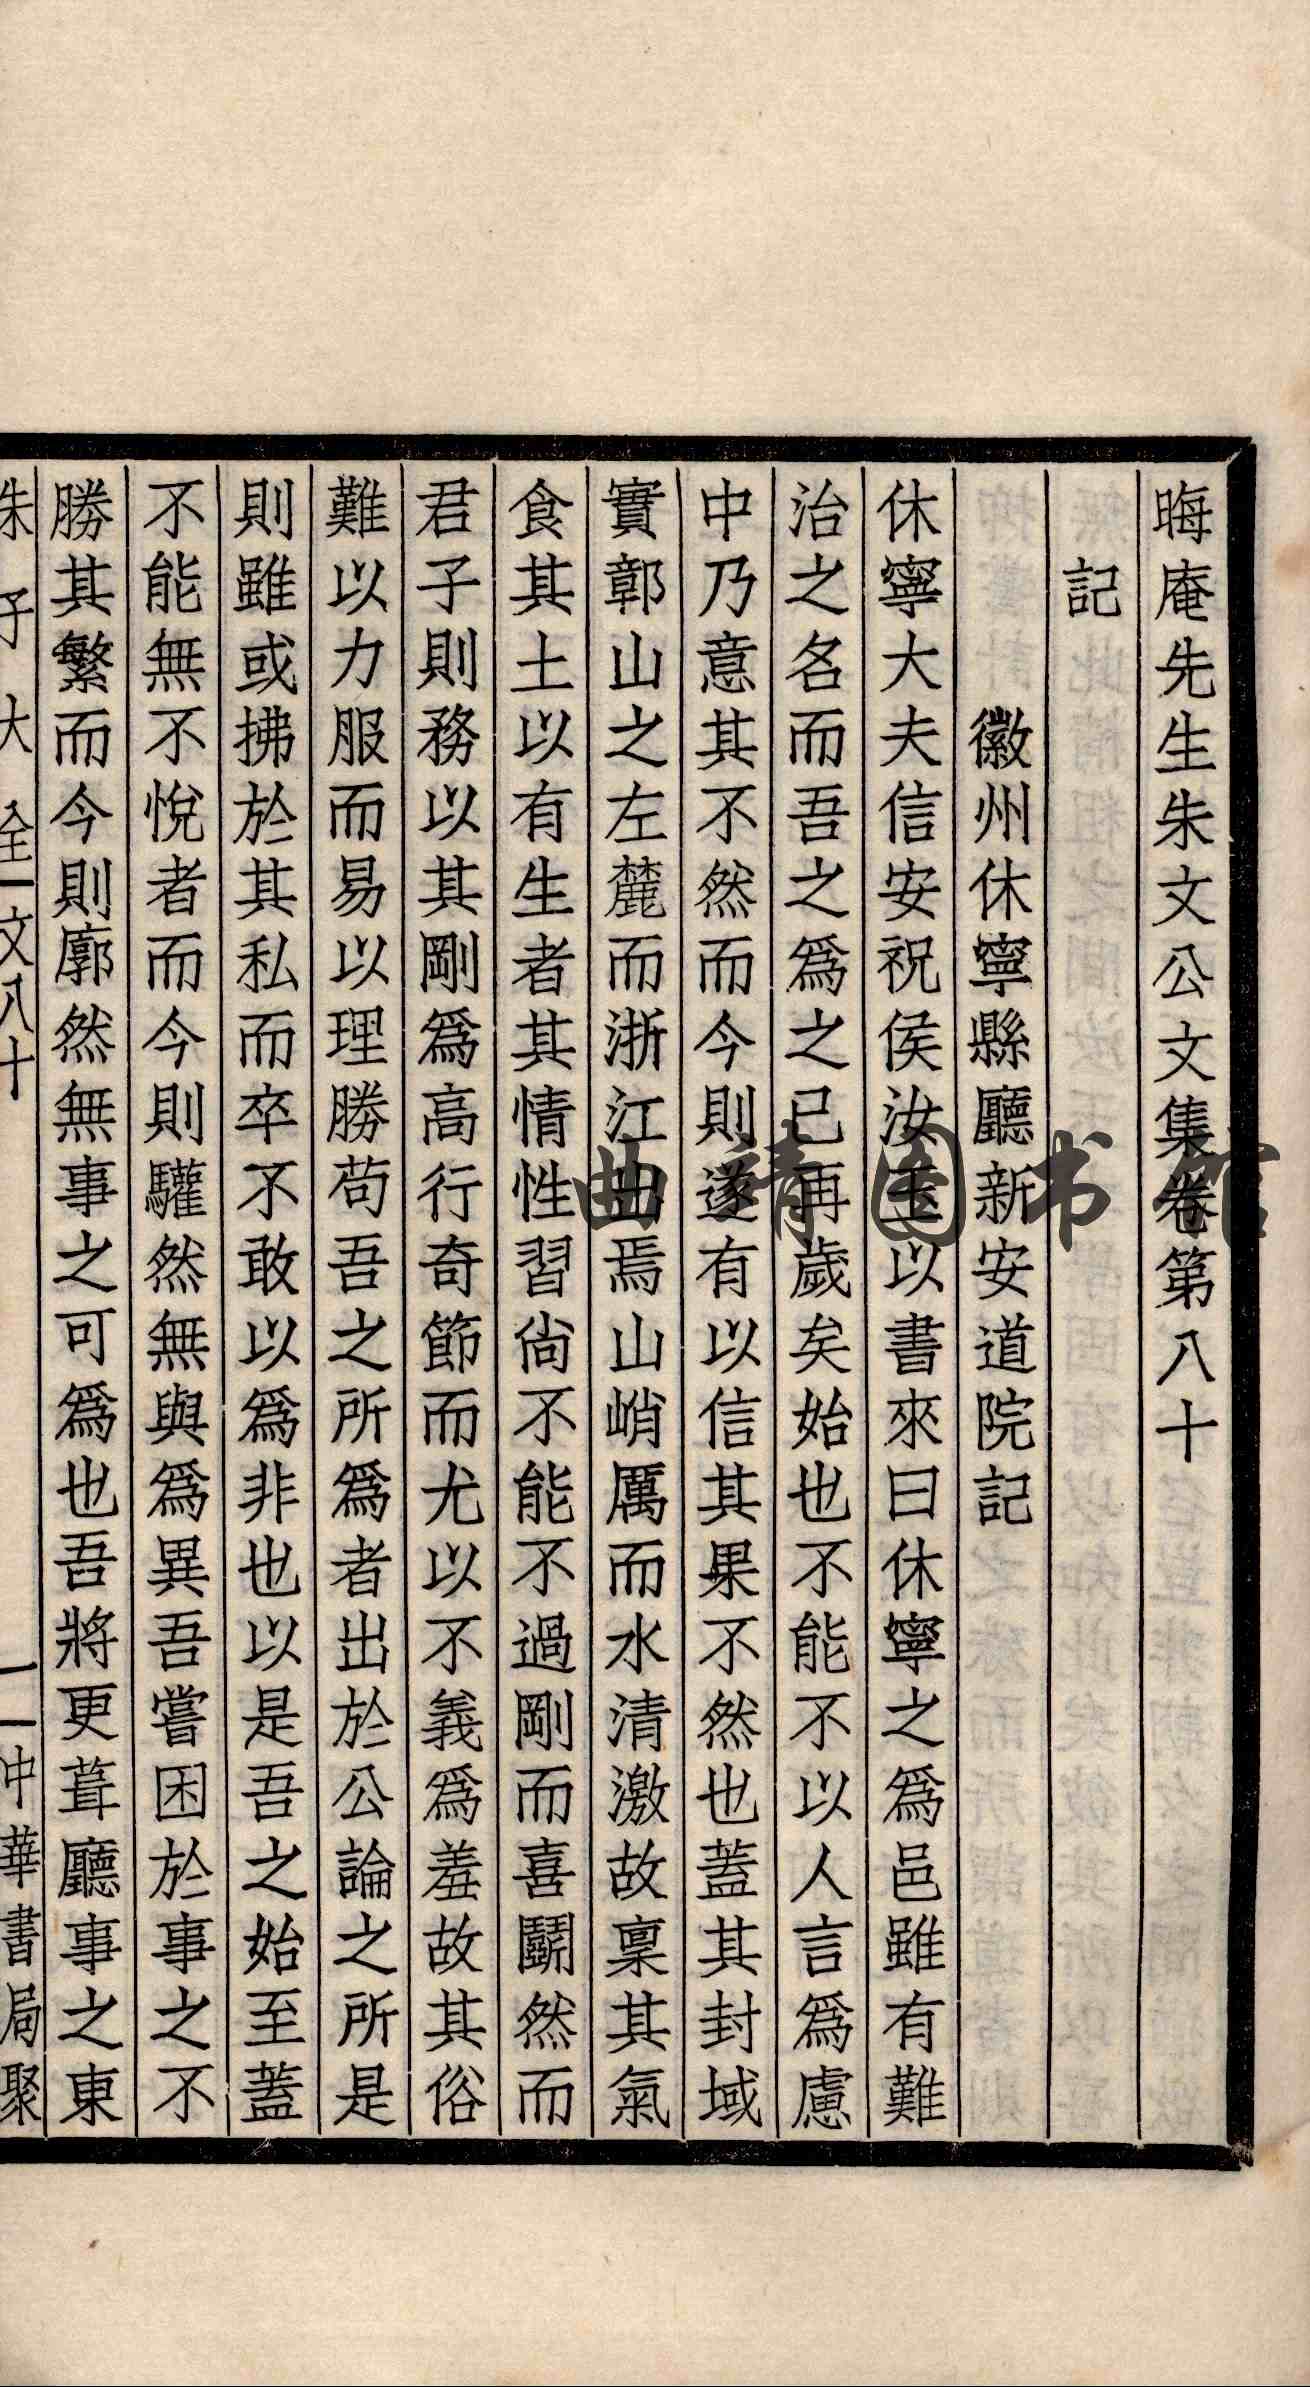 晦庵先生朱文公文集卷第八十
記
徽州休寧縣廳新安道院記
休寧大夫信安祝侯汝玉以書來曰休寧之爲邑雖有難
治之名而吾之爲之已再歲矣始也不能不以人言爲慮
中乃意其不然而今則遂有以信其果不然也蓋其封域
實鄣山之左麓而浙江出焉山峭厲而水清激故稟其氣
食其土以有生者其情性習尙不能不過剛而喜鬬然而
君子則務以其剛爲高行奇節而尤以不義爲羞故其俗
難以力服而易以理勝苟吾之所爲者出於公論之所是
則雖或拂於其私而卒不敢以爲非也以是吾之始至蓋
不能無不悅者而今則驩然無與爲異吾嘗困於事之不
勝其繁而今則廓然無事之可爲也吾將更葺廳事之東
朱子大全 文八十 一 中華書局聚
曲靖图书馆